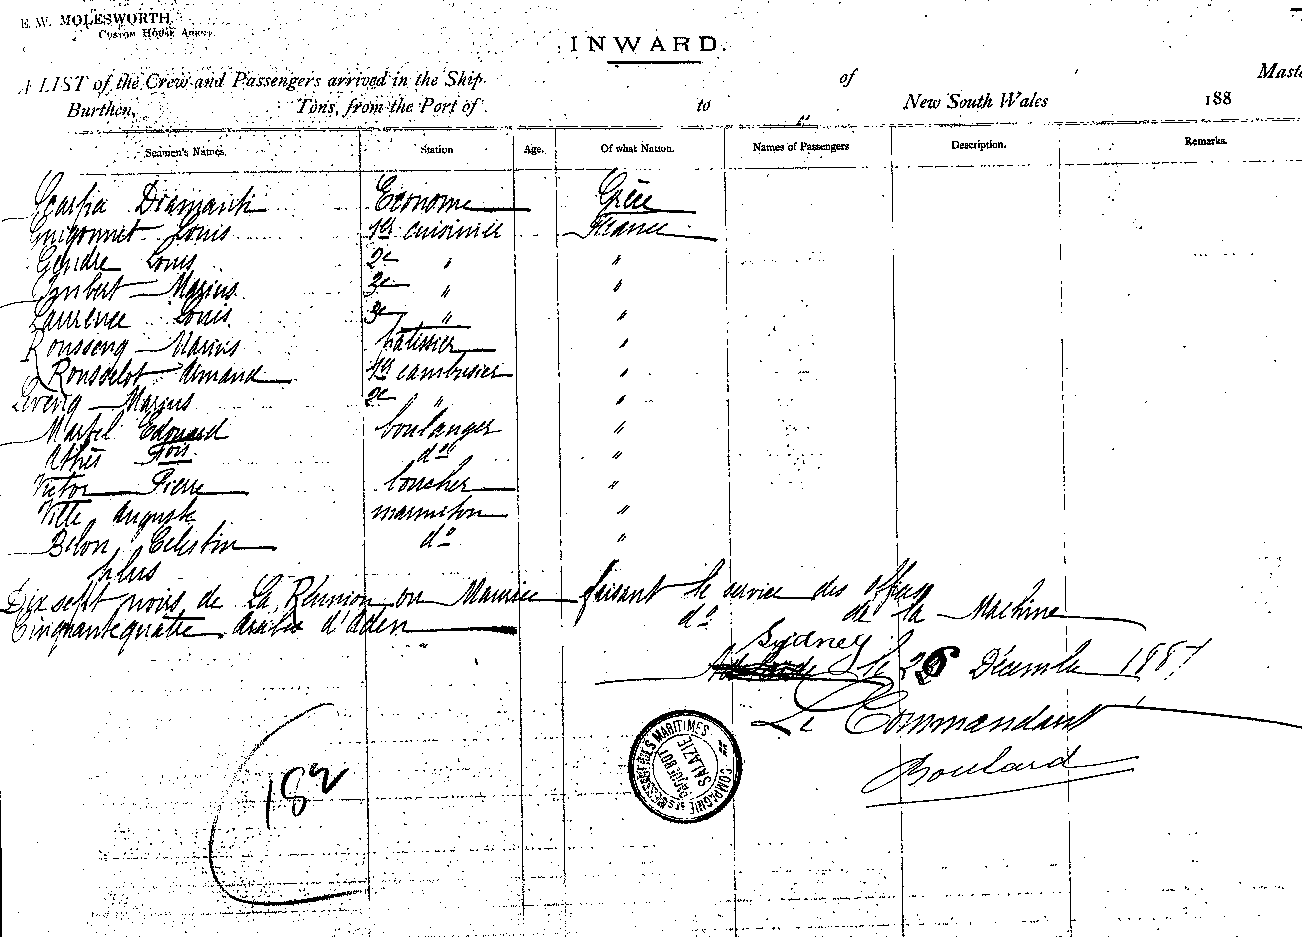 E. W. MOLESWORTH,
Custom House Agent.
INWARD.
A LIST of the Crew and Passengers arrived in the Ship of Maste
Burthen, Tons, from the Port of to New South Wales 188
Seamen's Names. Station Age. Of what Nation. Names of Passengers Description. Remarks.
Diamanti Econome Grèce
Guigonnet Louis 1er cuisinier France
Gendre Louis 2e " "
Imbert Marius 3e " "
Laurence Louis 3e " "
Rousseng Marius patissier "
Rousselot Armand 1er cambusier "
Marius 2e " "
Martel Edouard boulanger "
Athès do "
Victor Pierre boucher "
Ville Auguste marmiton "
Belon Celestin do "
plus
Dix sept noirs de La Réunion ou Maurice faisant le service des offices
Cinquante quatre arabes d'Aden do de la Machine
Sydney
Adelaide le 26 Décembre 1887
Le Commandant
Boulard
COMPAGNIE DES MESSAGERIES MARITIMES
PAQUEBOT
SALAZIE
182